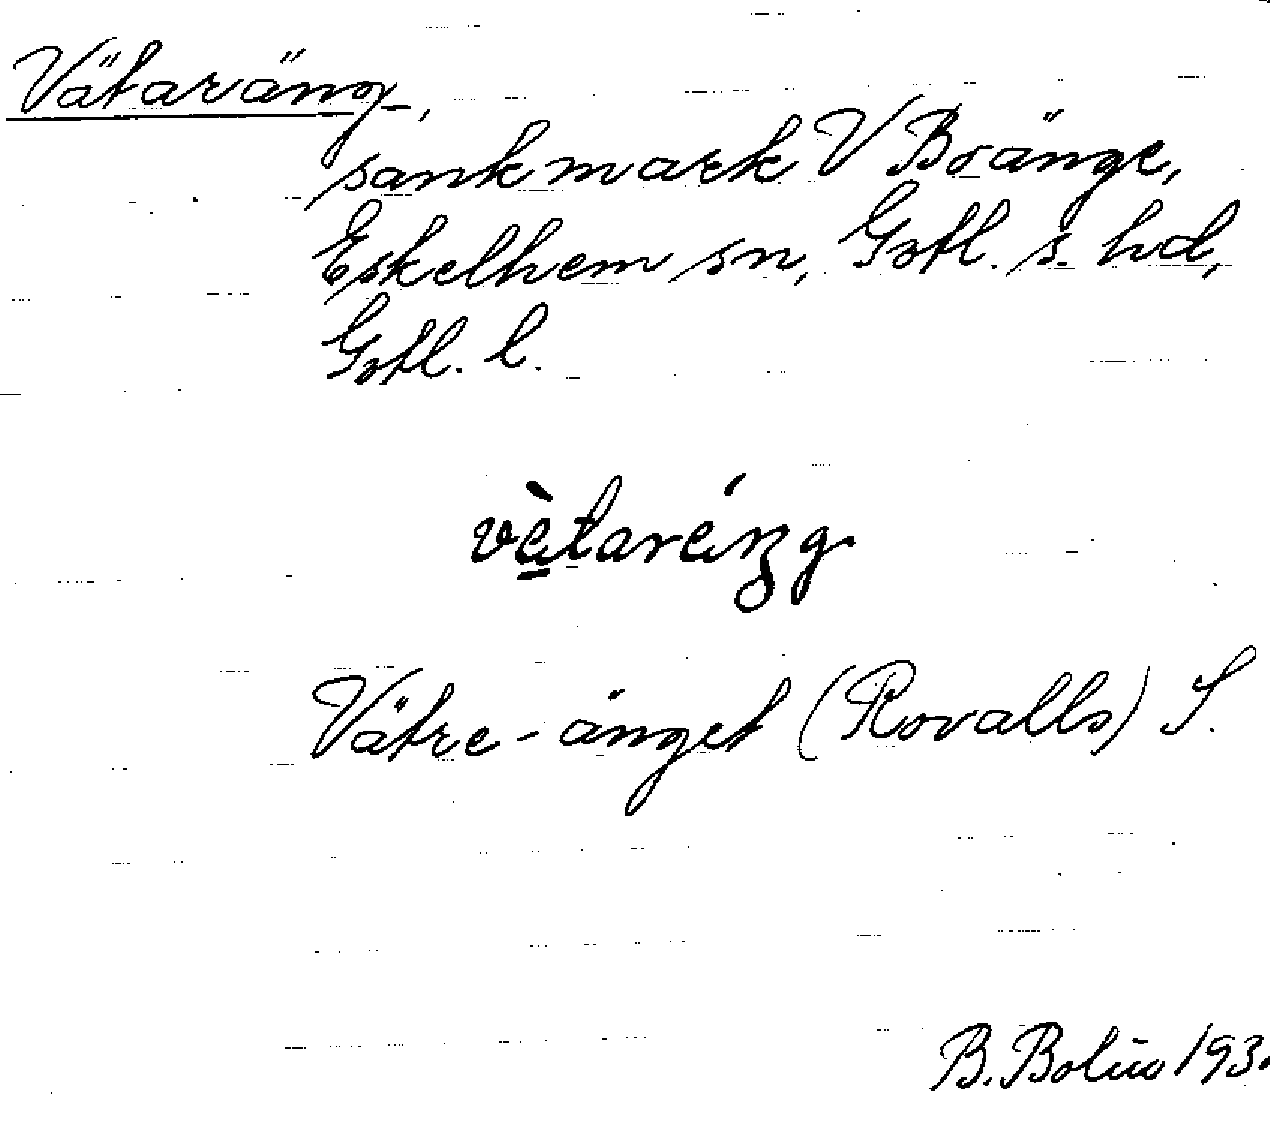 Vätaräng,
sankmark V Bränge,
Eskelhem sn, Gotl. s. hd,
Gotl. l.
vètaréŋg
Vätre-änget (Rovalls) S.
B. Bolin 193